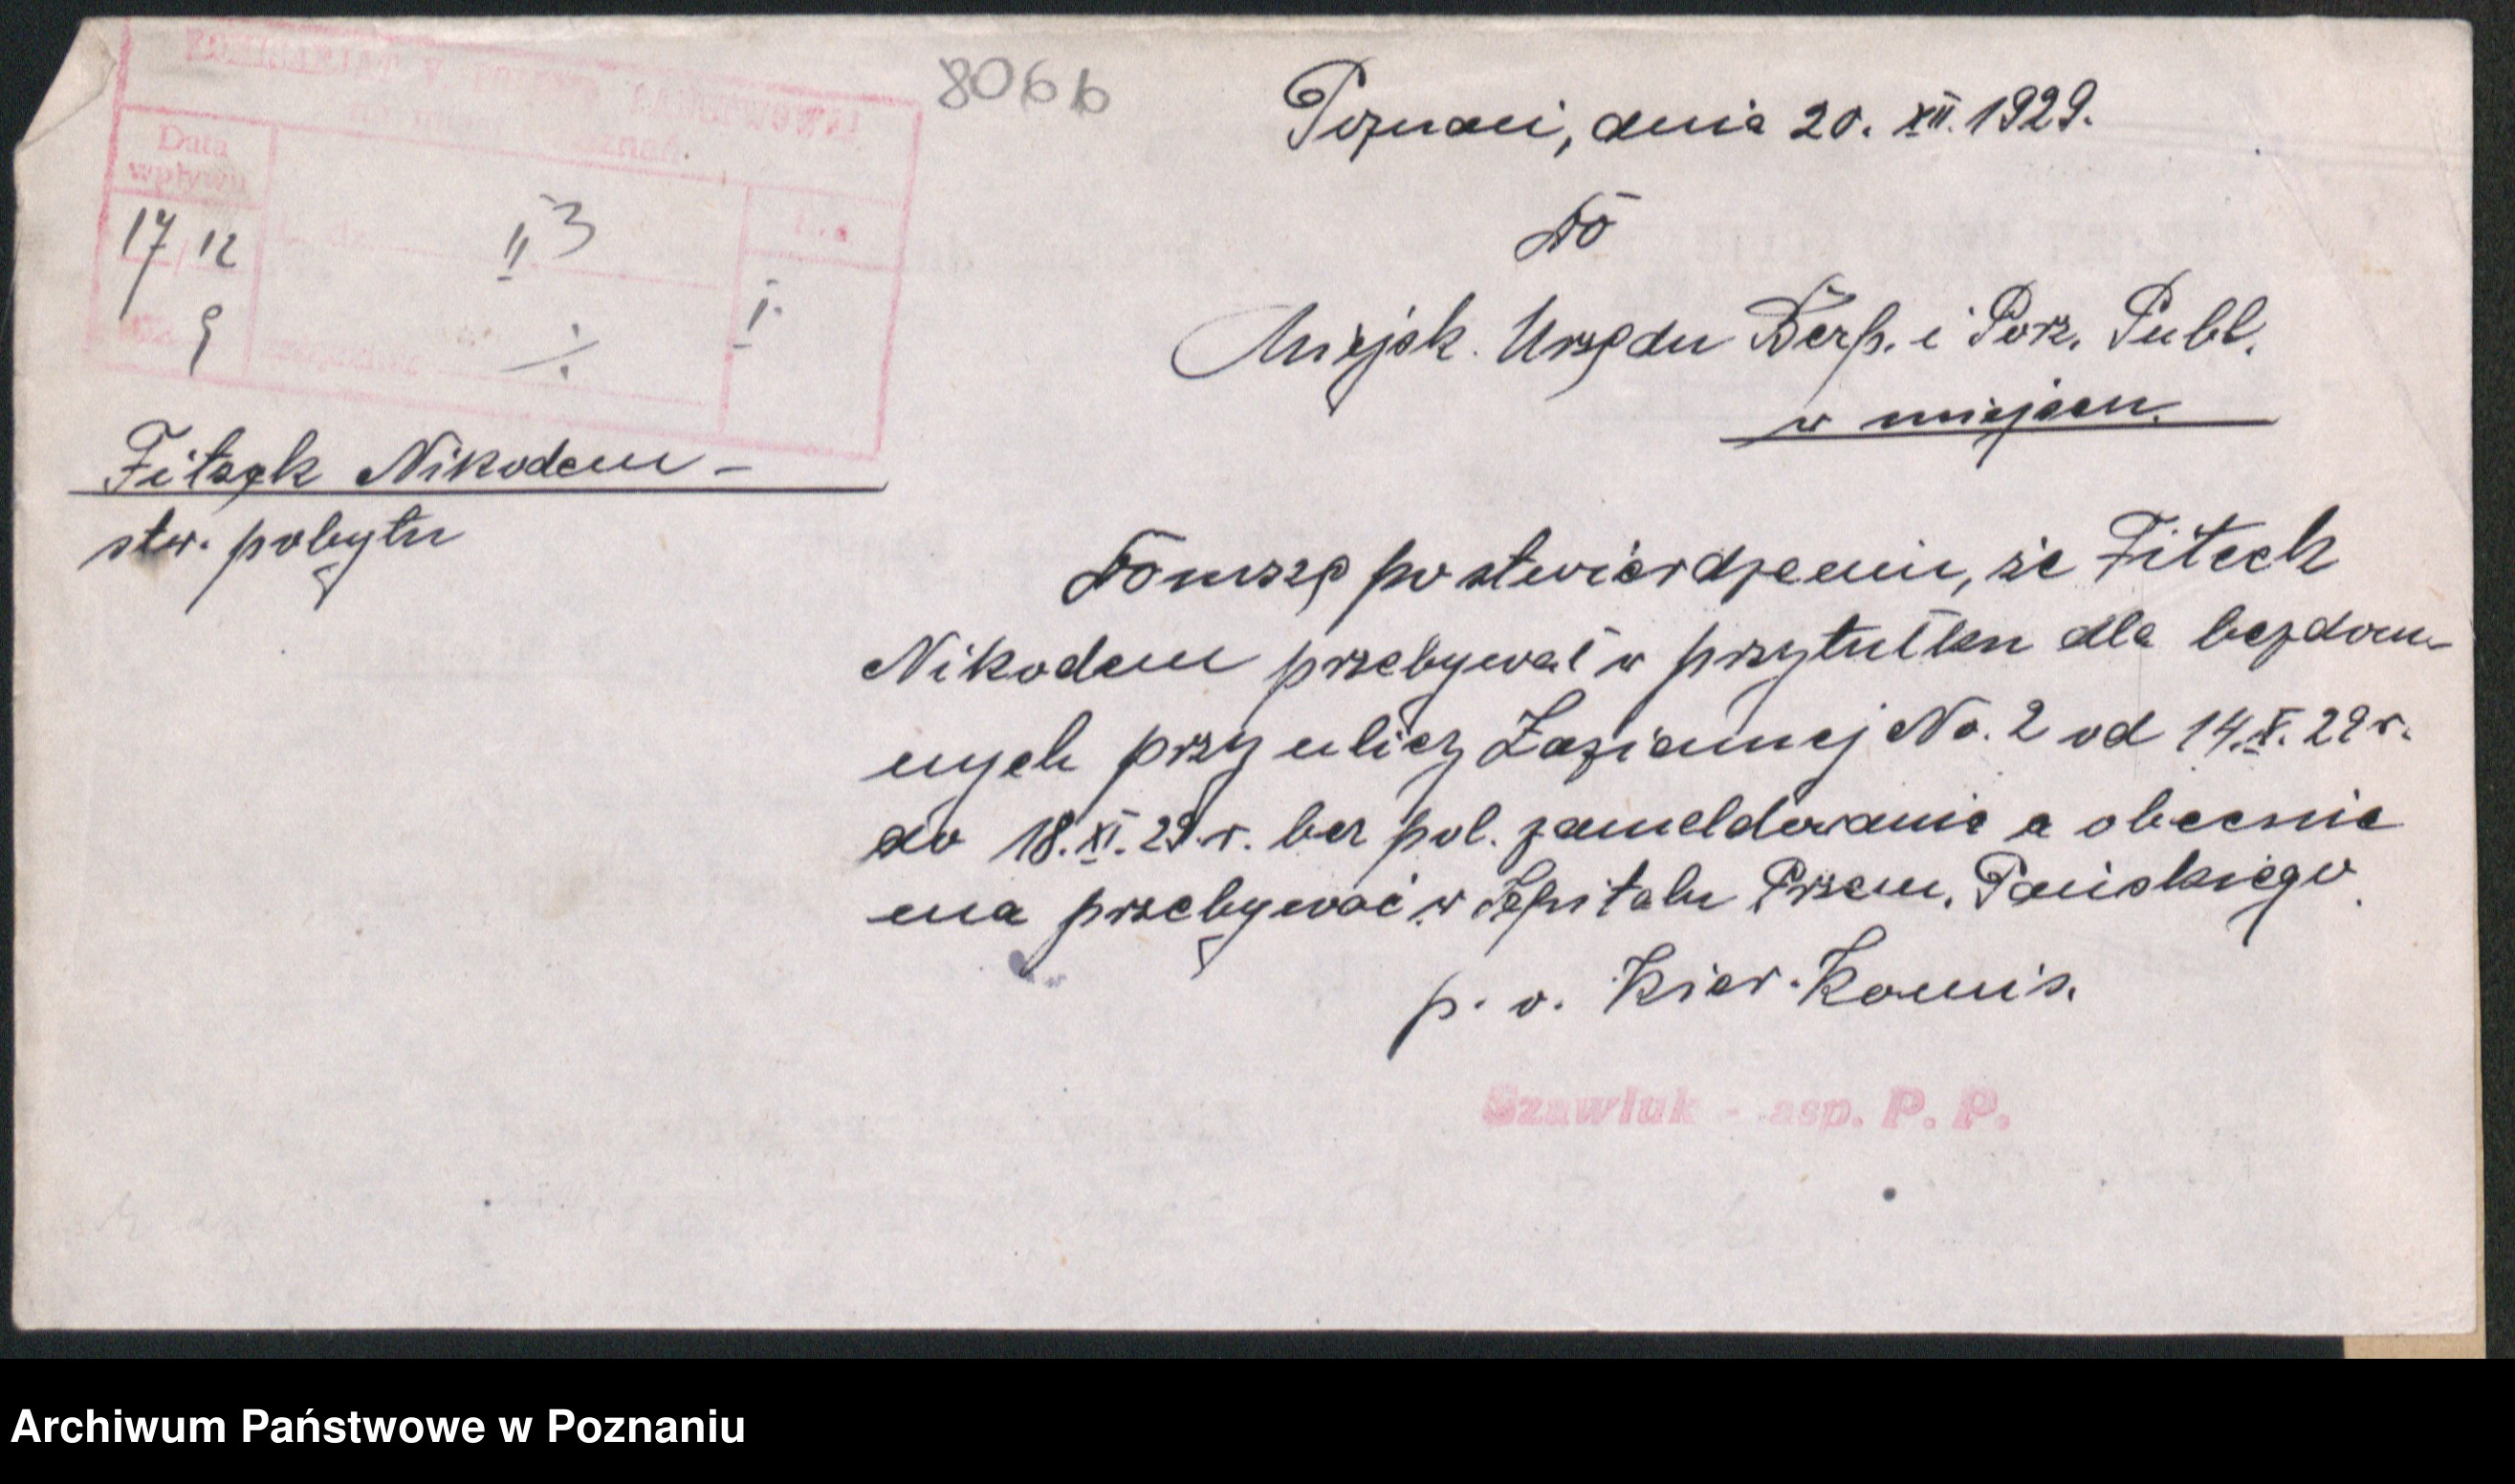 KOMISARJAT V. POLICJI PAŃSTWOWEJ
Poznań.
8066
Data
wpływu
17/12
9
II 3
I.
Poznań, dnia 20. XII. 1929.
Do
Miejsk. Urzędu Bezp. i Porz. Publ.
w miejscu.
Fitzek Nikodem –
stw. pobytu
Donoszę po stwierdzeniu, że Fitzek
Nikodem przebywał w przytułku dla bezdom-
nych przy ulicy Łaziennej No. 2 od 14.X.29 r.
do 18.XI.29.r. bez pol. zameldowania a obecnie
ma przebywać w Szpitalu Przem. Pańskiego.
p. o. Kier. Komis.
Szawluk - asp. P. P.
Archiwum Państwowe w Poznaniu